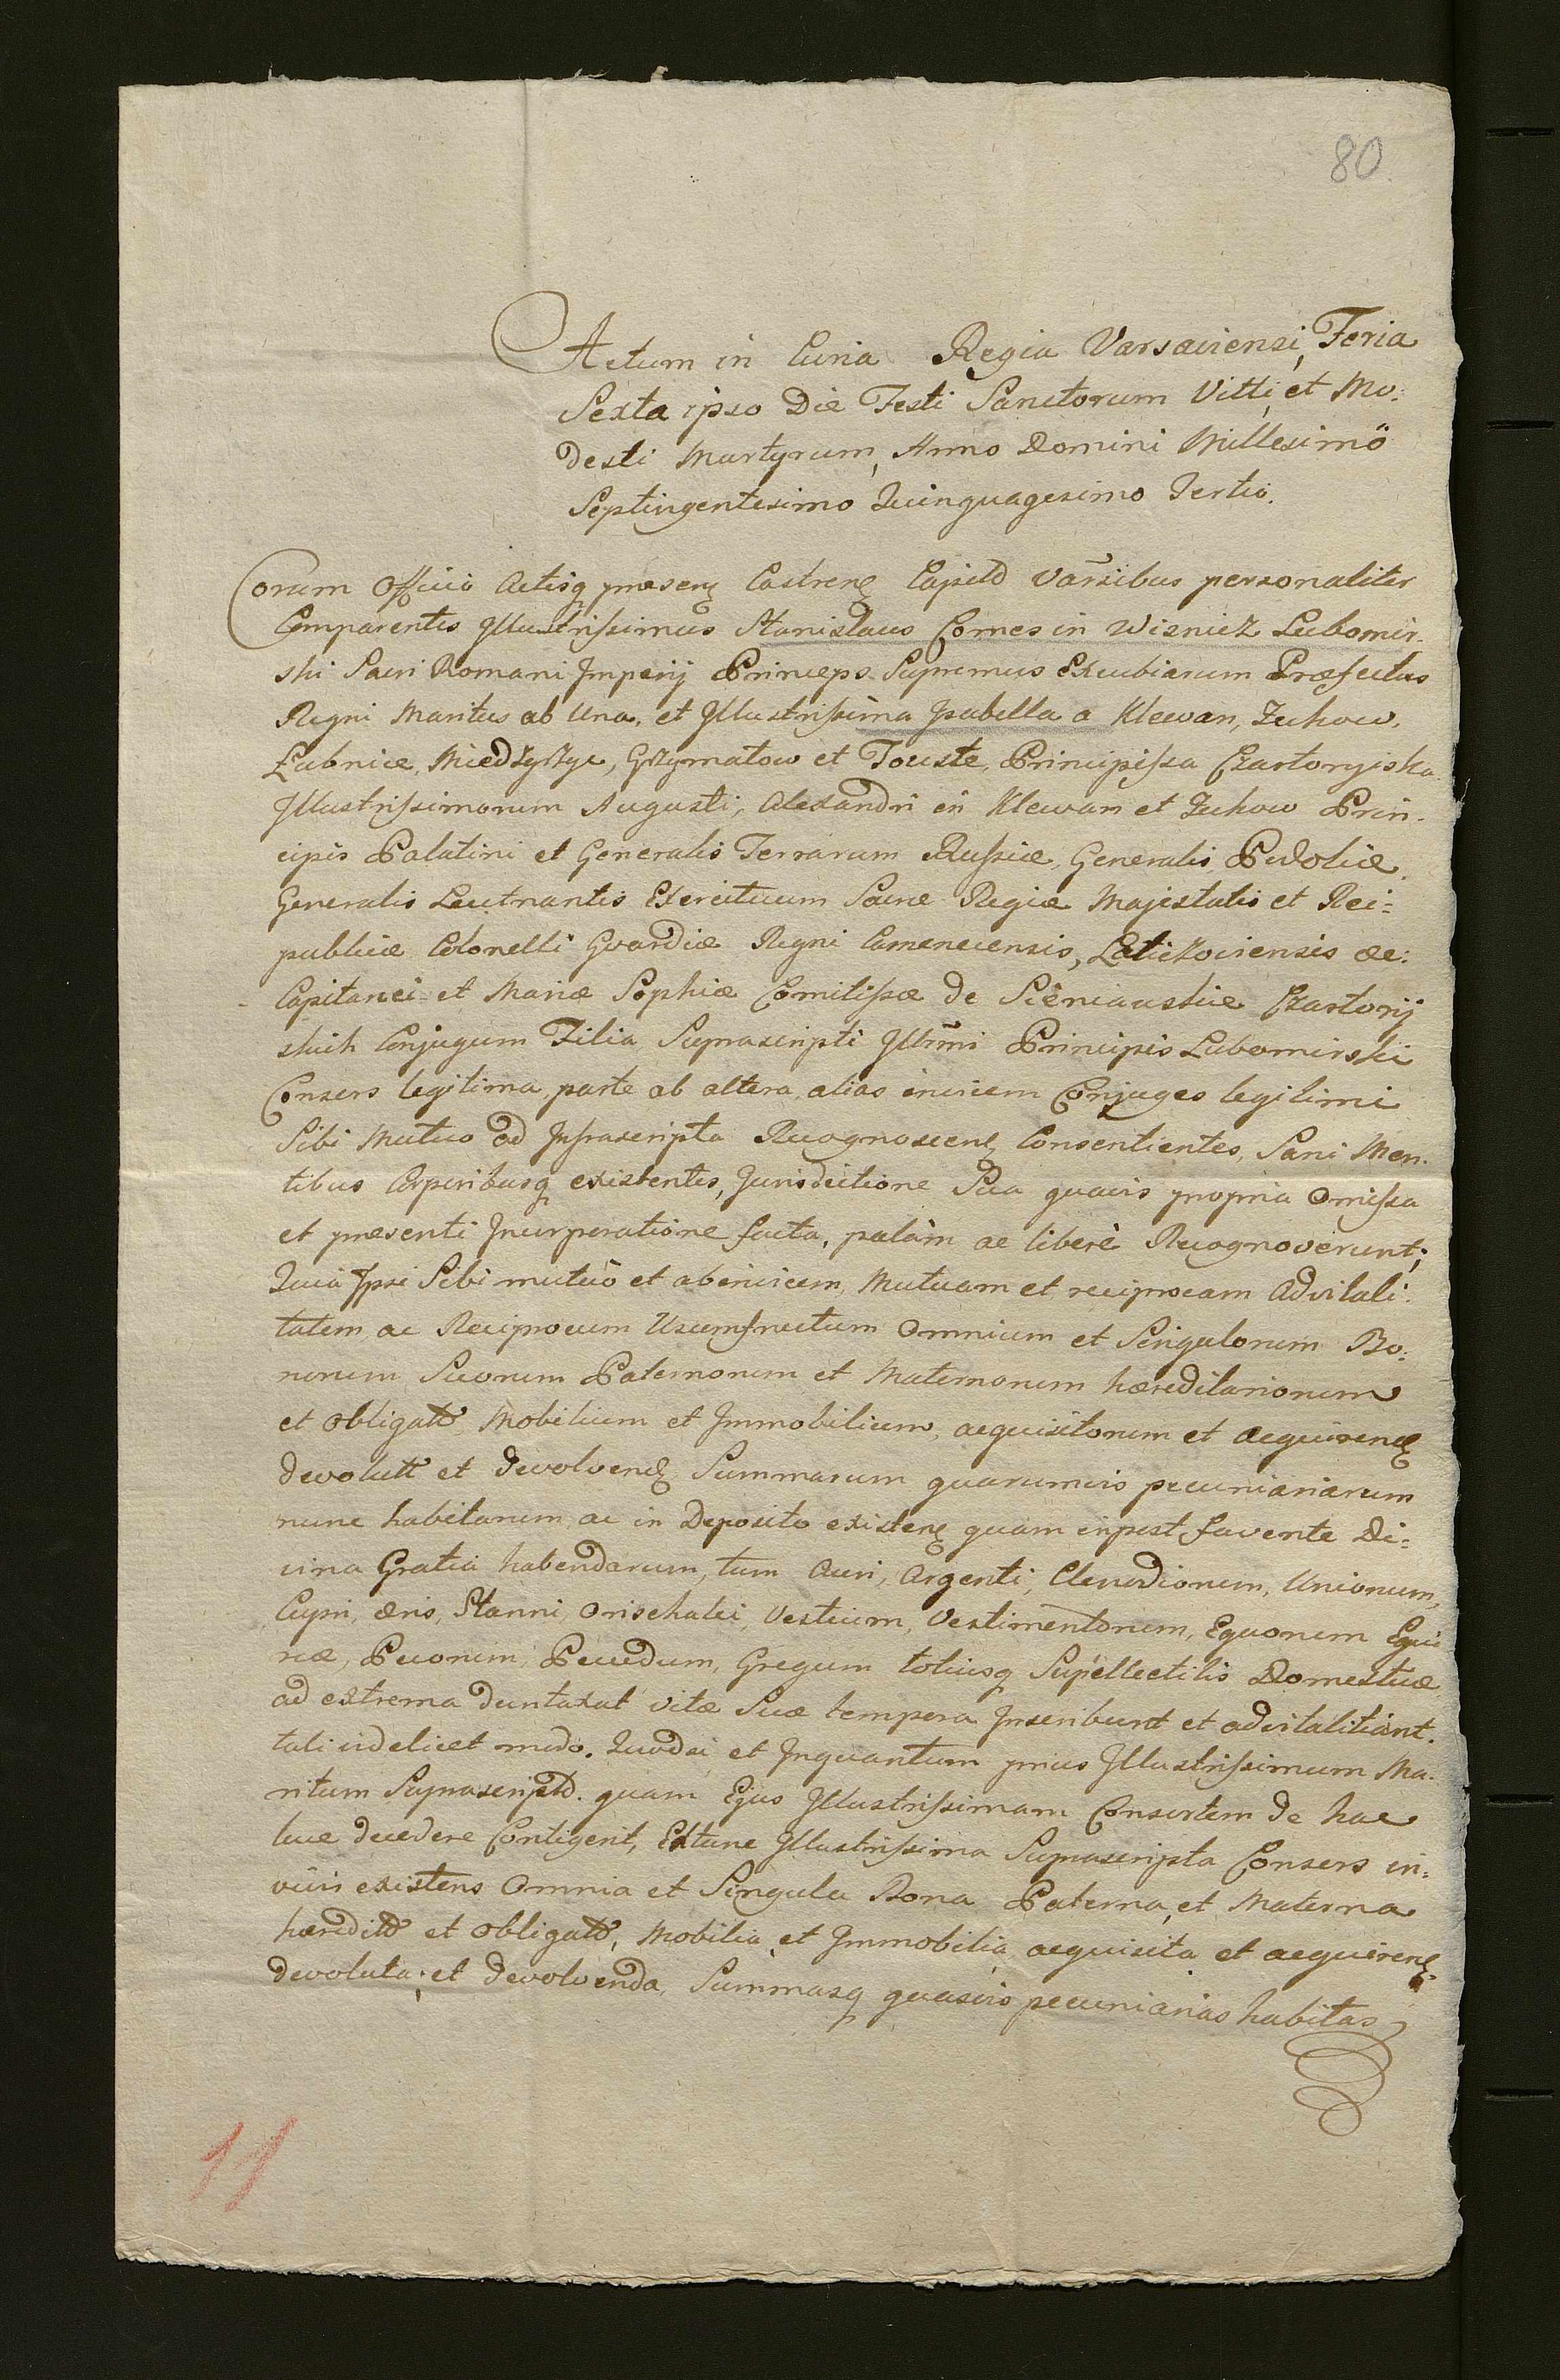 80
Actum in Curia Regia Varsaviensi, Feria
Sexta ipso Die Festi Sanctorum Vitti, et Mo:
desti Martyrum, Anno Domini Millesimo
Septingentesimo Quinquagesimo Tertio.
Coram Officio Actisq presen Castren Capitl Varsibus personaliter
Comparentes Illustrissimus Stanislaus Comes in Wisnicz Lubomir-
ski Sacri Romani Imperij Princeps Supremus Excubiarum Præfectus
Regni Maritus ab una, et Illustrissima Isabella a Klewan, Zukow,
Łubnice, Miedzyrzyc, Grzymałow et Touste, Principissa Czartoryiska
Illustrissimorum Augusti, Alexandri in Klewan et Zukow Prin-
cipis Palatini et Generalis Terrarum Russiæ, Generalis Podoliæ,
Generalis Leutnantis Exercituum Sacræ Regiæ Majestatis et Rei=
publicæ Colonelli Gvardiæ Regni Camenecensis, Laticzoviensis &c:
Capitanei et Mariæ Sophiæ Comitissæ de Sieniawskie Czartorij
skich Conjugum Filia, Suprascripti Illmi Principis Lubomirskii
Consors legitima, parte ab altera, alias invicem Conjuges legitimi
Sibi Mutuo ad Infrascripta Recognoscen Consentientes, Sani Men-
tibus Corporibusq existentes, Jurisdictione Sua quavis propria Omissa
et præsenti Incorporatione facta, palàm ac liberè Recognoverunt;
Quia Ipsi Sibi mutuò et abinvicem, Mutuam et reciprocam Advitali-
tatem ac Reciprocum Usumfructum Omnium et Singulorum Bo:
norum Suorum Paternorum et Maternorum hæreditariorum
et obligat Mobilium et Immobilium, acquisitorum et acquiren
devolutt et devolven Summarum quarumvis pecuniariarum
nunc habitarum ac in Deposito existen quam inpost favente Di:
vina Gratia habendarum, tum Auri, Argenti, Clenodiorum, Unionum,
Cupri, æris, Stanni, Orichalci, Vestium, Vestimentorum, Equorum Equi
riæ, Pecorum, Pecudum, Gregum totiusq Supellectilis Domesticæ
ad extrema duntaxat vitæ Suæ tempora Inscribunt et advitalitiant.
tali videlicet modo. Quodsi et Inquantum prius Illustrissimum Ma-
ritum Suprascript. quam Ejus Illustrissimam Consortem de hac
luce decedere Contigerit, Extunc Illustrissima Suprascripta Consors in:
vivis existens Omnia et Singula Bona Paterna, et Materna
hæredit et obligat, Mobilia et Immobilia acquisita et acquiren
devoluta; et devolvenda, Summasq quasvis pecuniarias habitas
11